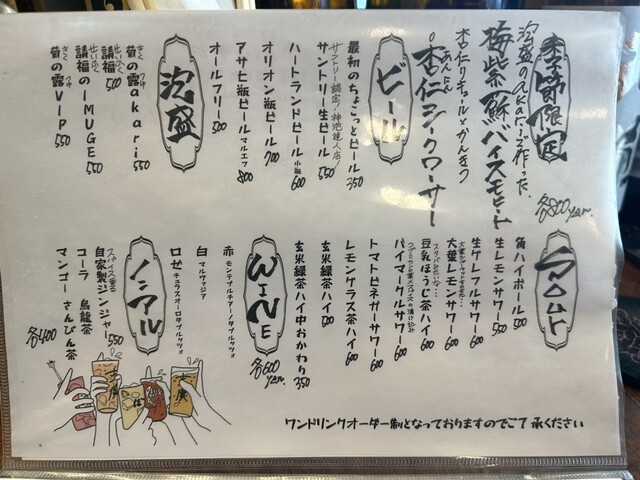 季節限定
泡盛のakariで作った、
梅紫蘇バイスモヒート
杏仁リキュールとかんきつ
杏仁シークワーサー
各800yen.
ビール
最初のちょこっとビール 350
サントリー認定！神泡達人店！
サントリー生ビール 550
ハートランドビール 小瓶 600
オリオン瓶ビール 700
アサヒ瓶ビール マルエフ 800
オールフリー 500
泡盛
きくのつゆ
菊の露akari 550
せいふく
請福 500
せいふく
請福のIMUGE 550
きくのつゆ
菊の露VIP 550
角ハイボール 500
生レモンサワー 550
生グレフルサワー 600
大葉レモンサワー 600
豆乳ほうじ茶ハイ 600
パイマークルサワー 600
トマトビネガーサワー 600
レモングラス茶ハイ 600
玄米緑茶ハイ 500
玄米緑茶ハイ中おかわり 350
WiNE
各600yen.
赤 モンテプルチアーノダブルッツォ
白 マルヴァジア
ロゼ チェラスオーロダブルッツォ
ノンアル
スパイス香る
自家製ジンジャー 550
コーラ 烏龍茶
マンゴー さんぴん茶
各400
ワンドリンクオーダー制となっておりますのでご了承ください